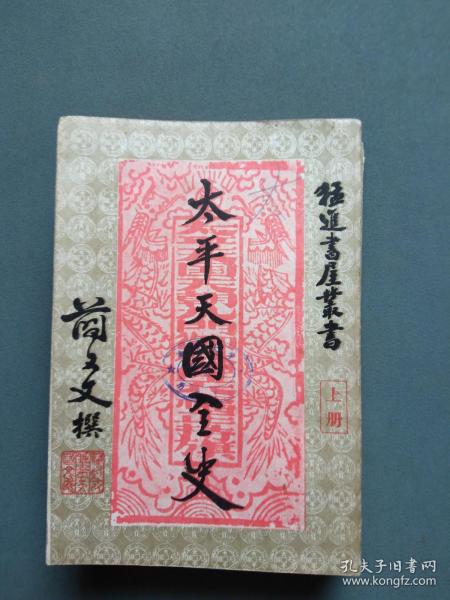 猛進書屋叢書
上册
太平天國全史
簡又文撰
孔夫子旧书网
www.kongfz.com